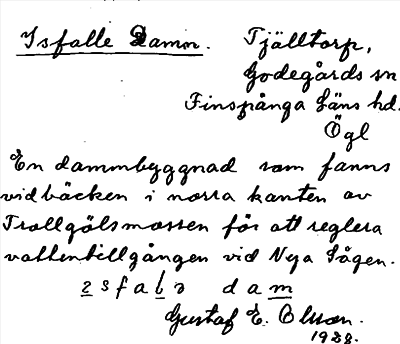 Isfalle Damm. Tjälltorp,
Godegårds sn
Finspånga Läns hd.
Ögl
En dammbyggnad som fanns
vid bäcken i norra kanten av
Trollgölsmossen för att reglera
vattentillgången vid Nya Sågen.
dam
Gustaf E. Olsson.
1928.